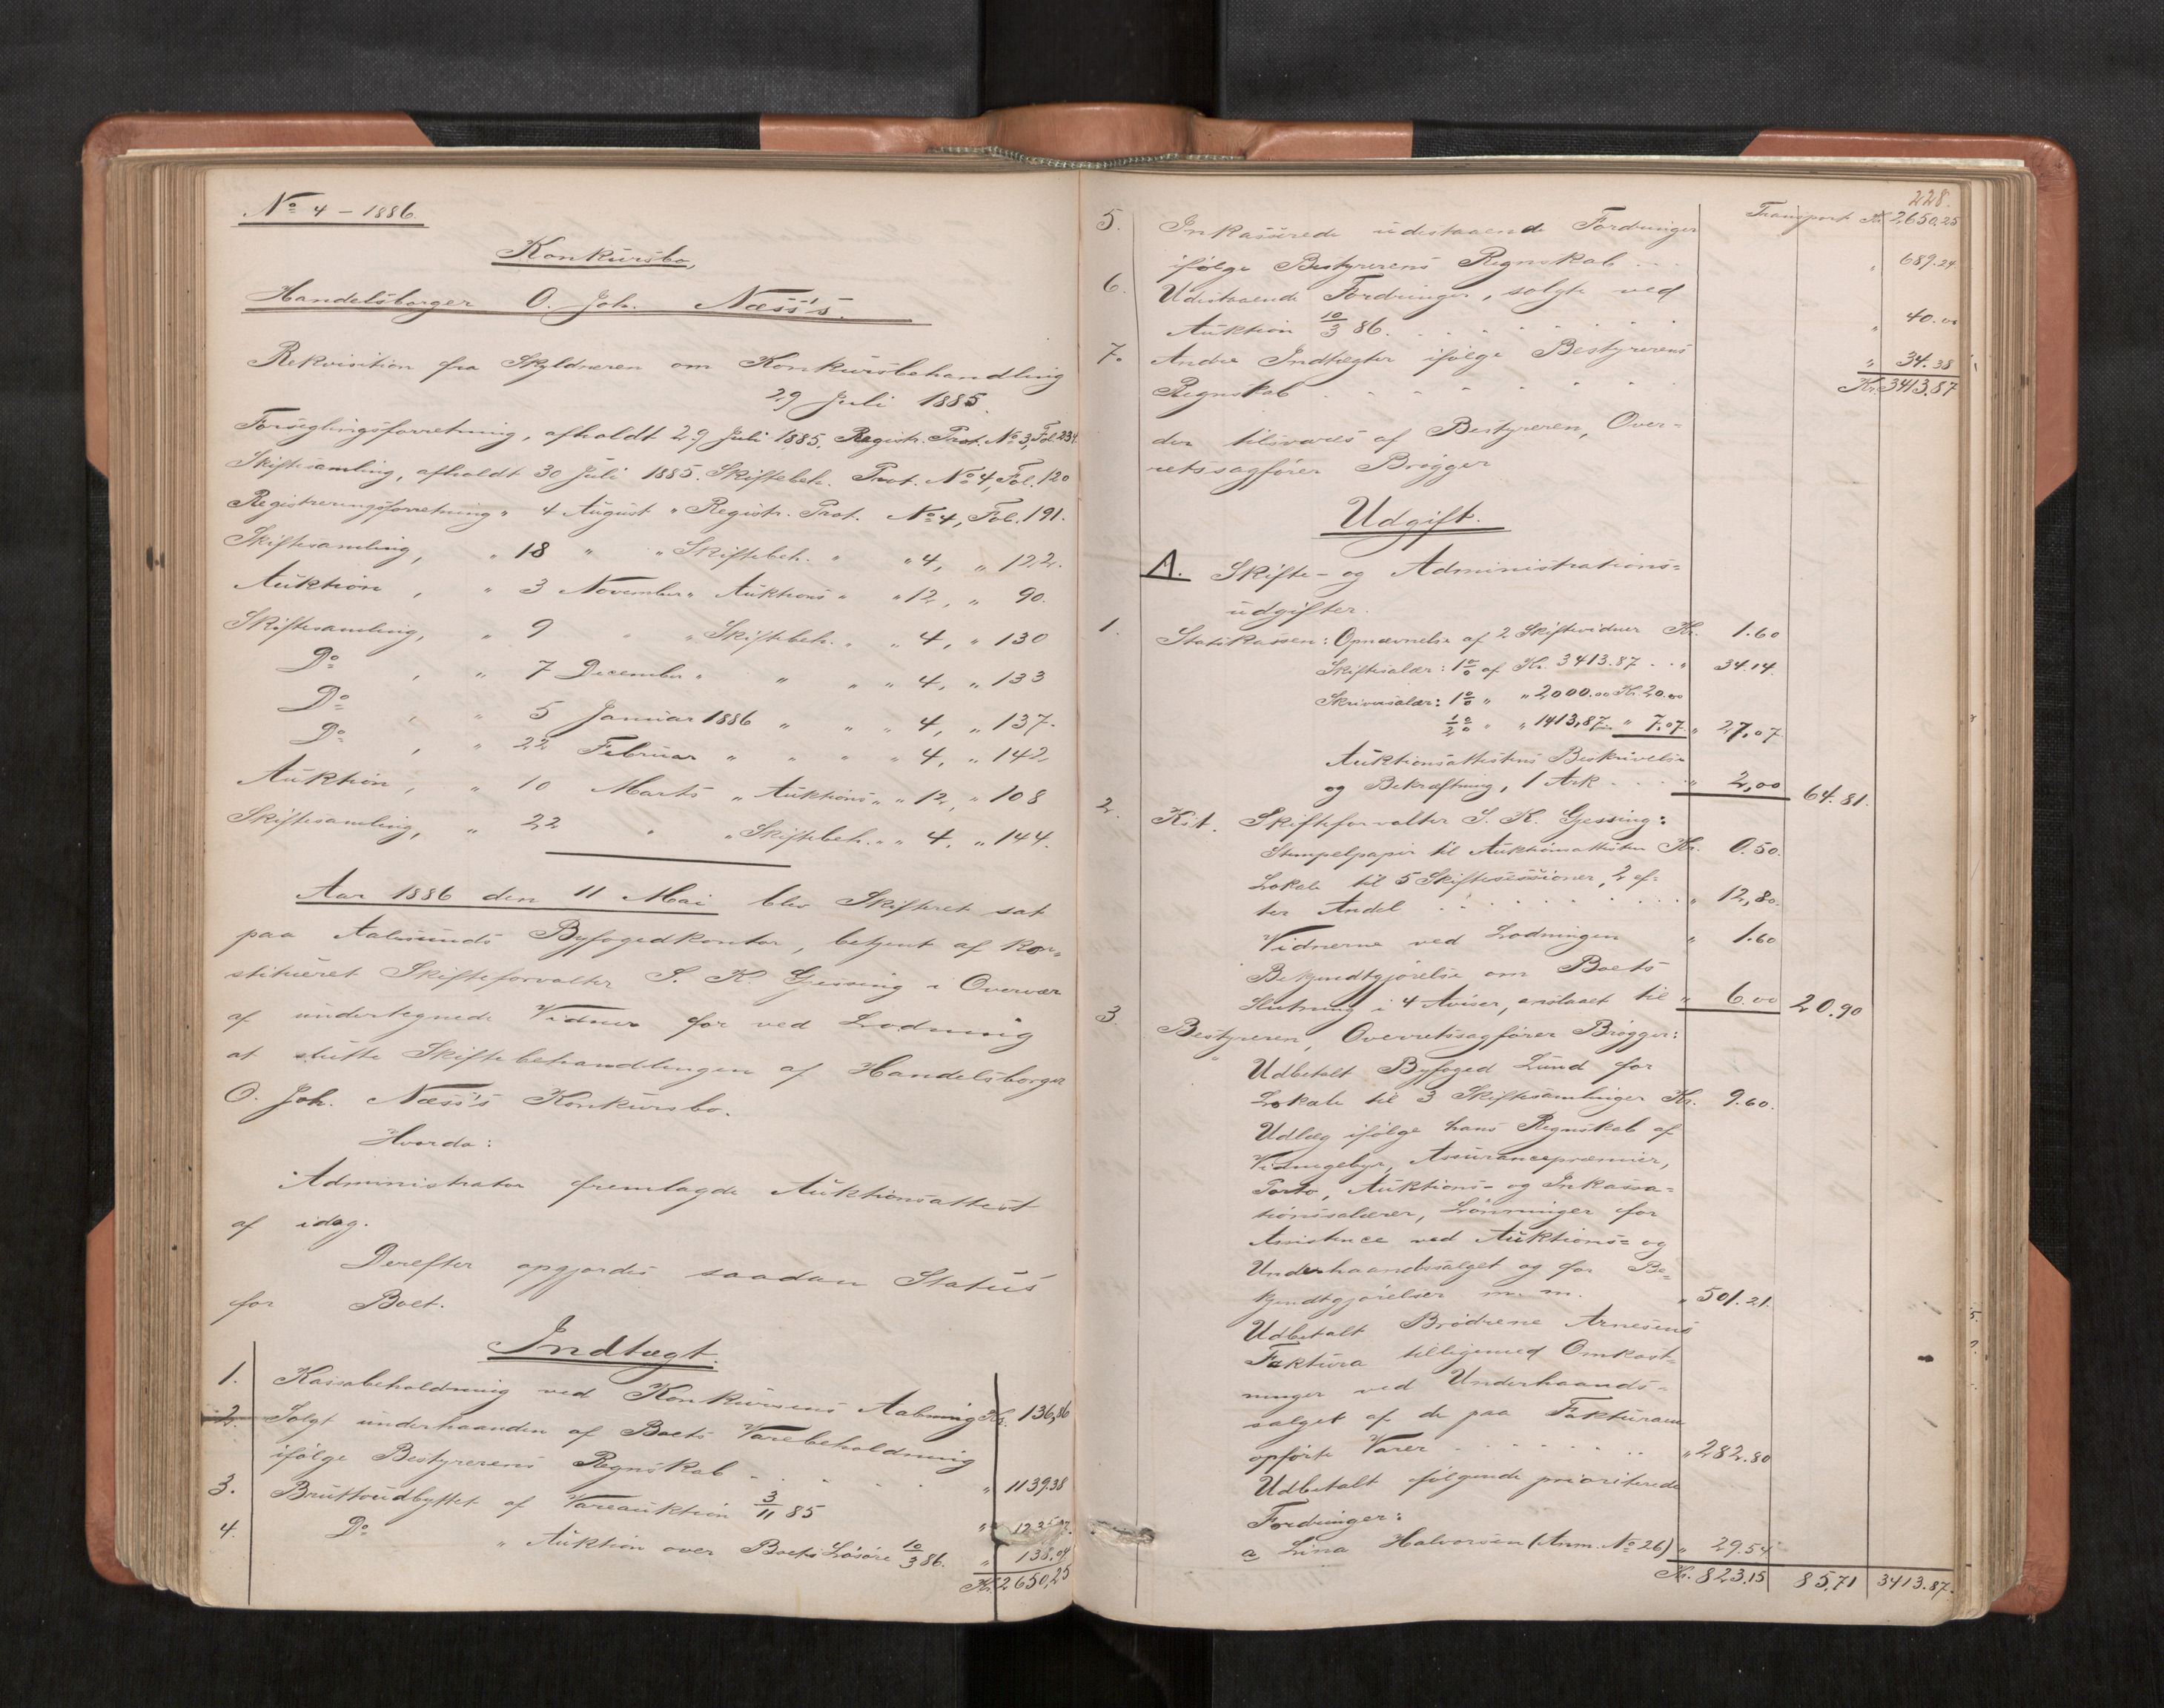 No 4 – 1886.
Konkursbo,
Handelsborger O. Joh. Næss's.
Rekvisition fra Skyldneren om Konkursbehandling
29 Juli 1885.
Forseglingsforretning, afholdt 29 Juli 1885. Registr. Prot. No 3, Fol. 234.
Skiftesamling, afholdt 30 Juli 1885. Skiftebeh. Prot. No 4, Fol. 120
Registreringsforretning " 4 August " Registr. Prot. No 4, Fol. 191.
Skiftesamling, " 18 " " Skiftebeh. " " 4, " 122.
Auktion, " 3 November " Auktions " " 12, " 90.
Skiftesamling, " 9 " " Skiftebeh. " " 4, " 130
Do , " 7 December " " " " 4, " 133
Do , " 5 Januar 1886 " " " 4, " 137.
Do , " 22 Februar " " " " 4, " 142
Auktion, " 10 Marts " Auktions " " 12, " 108
Skiftesamling, " 22 " " Skiftebeh. " " 4, " 144.
Aar 1886 den 11 Mai blev Skifteret sat
paa Aalesunds Byfogedkontor, betjent af kon-
stitueret Skifteforvalter S. K. Gjessing i Overvær
af undertegnede Vidner for ved Lodning
at slutte Skiftebehandlingen af Handelsborger
O. Joh. Næss's Konkursbo.
Hvorda:
Administrator fremlagde Auktionsattest
af idag.
Derefter opgjordes saadan Status
for Boet.
Indtægt.
1. Kassabeholdning ved Konkursens Aabning Kr. 136,86
2. Solgt underhaanden af Boets Varebeholdning
ifølge Bestyrerens Regnskab . . . . " 1139.38
3. Bruttoudbyttet af Vareauktion 3/11 85 "
4. Do " Auktion over Boets Løsøre 10/3 86. " 138.04
Kr. 2650,25
228.
Transport Kr. 2650,25
5. Inkasserede udestaaende Fordringer
ifølge Bestyrerens Regnskab . . . " 689.24
6. Udestaaende Fordringer, solgte ved
Auktion 10/3 86. . . . . . . " 40.00
7. Andre Indtægter ifølge Bestyrerens
Regnskab . . . . . . " 34.38
Kr. 3413.87
der tilsvares af Bestyreren, Over-
retssagfører Brøgger
Udgift.
A. Skifte- og Administrations-
udgifter.
1. Statskassen: Opnævnelse af 2 Skiftevidner Kr. 1.60
Skiftesalær: 1% af Kr. 3413.87 . . " 34.14.
Skriversalær: 1% " " 2000.00 Kr. 20.00
1/2% " " 1413,87 " 7.07 " 27,07
Auktionsattestens Beskrivelse
og Bekræftning, 1 Ark . . . . " 2,00 64.81.
2. Kst. Skifteforvalter S. K. Gjessing:
Stempelpapir til Auktionsattesten Kr. 0.50.
Lokale til 5 Skiftesessioner, 2 ef-
ter Andel . . . . . . . . . . " 12,80.
Vidnerne ved Lodningen " 1.60
Bekjendtgjørelse om Boets
Slutning i 4 Aviser, anslaaet til " 6.00 20.90
3. Bestyreren, Overretssagfører Brøgger:
Udbetalt Byfoged Lund for
Lokale til 3 Skiftesamlinger Kr. 9.60.
Udlæg ifølge hans Regnskab af
Vidnegebyr, Assurancepræmier,
Porto, Auktions- og Inkassa-
tionssalærer, Lønninger for
Assistence ved Auktions- og
Underhaandssalget og for Be-
kjendtgjørelser m. m. " 501.21.
Udbetalt Brødrene Arnesens
Faktura tilligemed Omkost-
ninger ved Underhaands-
salget af de paa Fakturaen
opførte Varer . . . . . . . . " 282.80
Udbetalt følgende prioriterede
Fordringer:
a Lina Halvorsen (Anm. No 26) " 29.54
Kr. 823.15 85,71 3413.87.